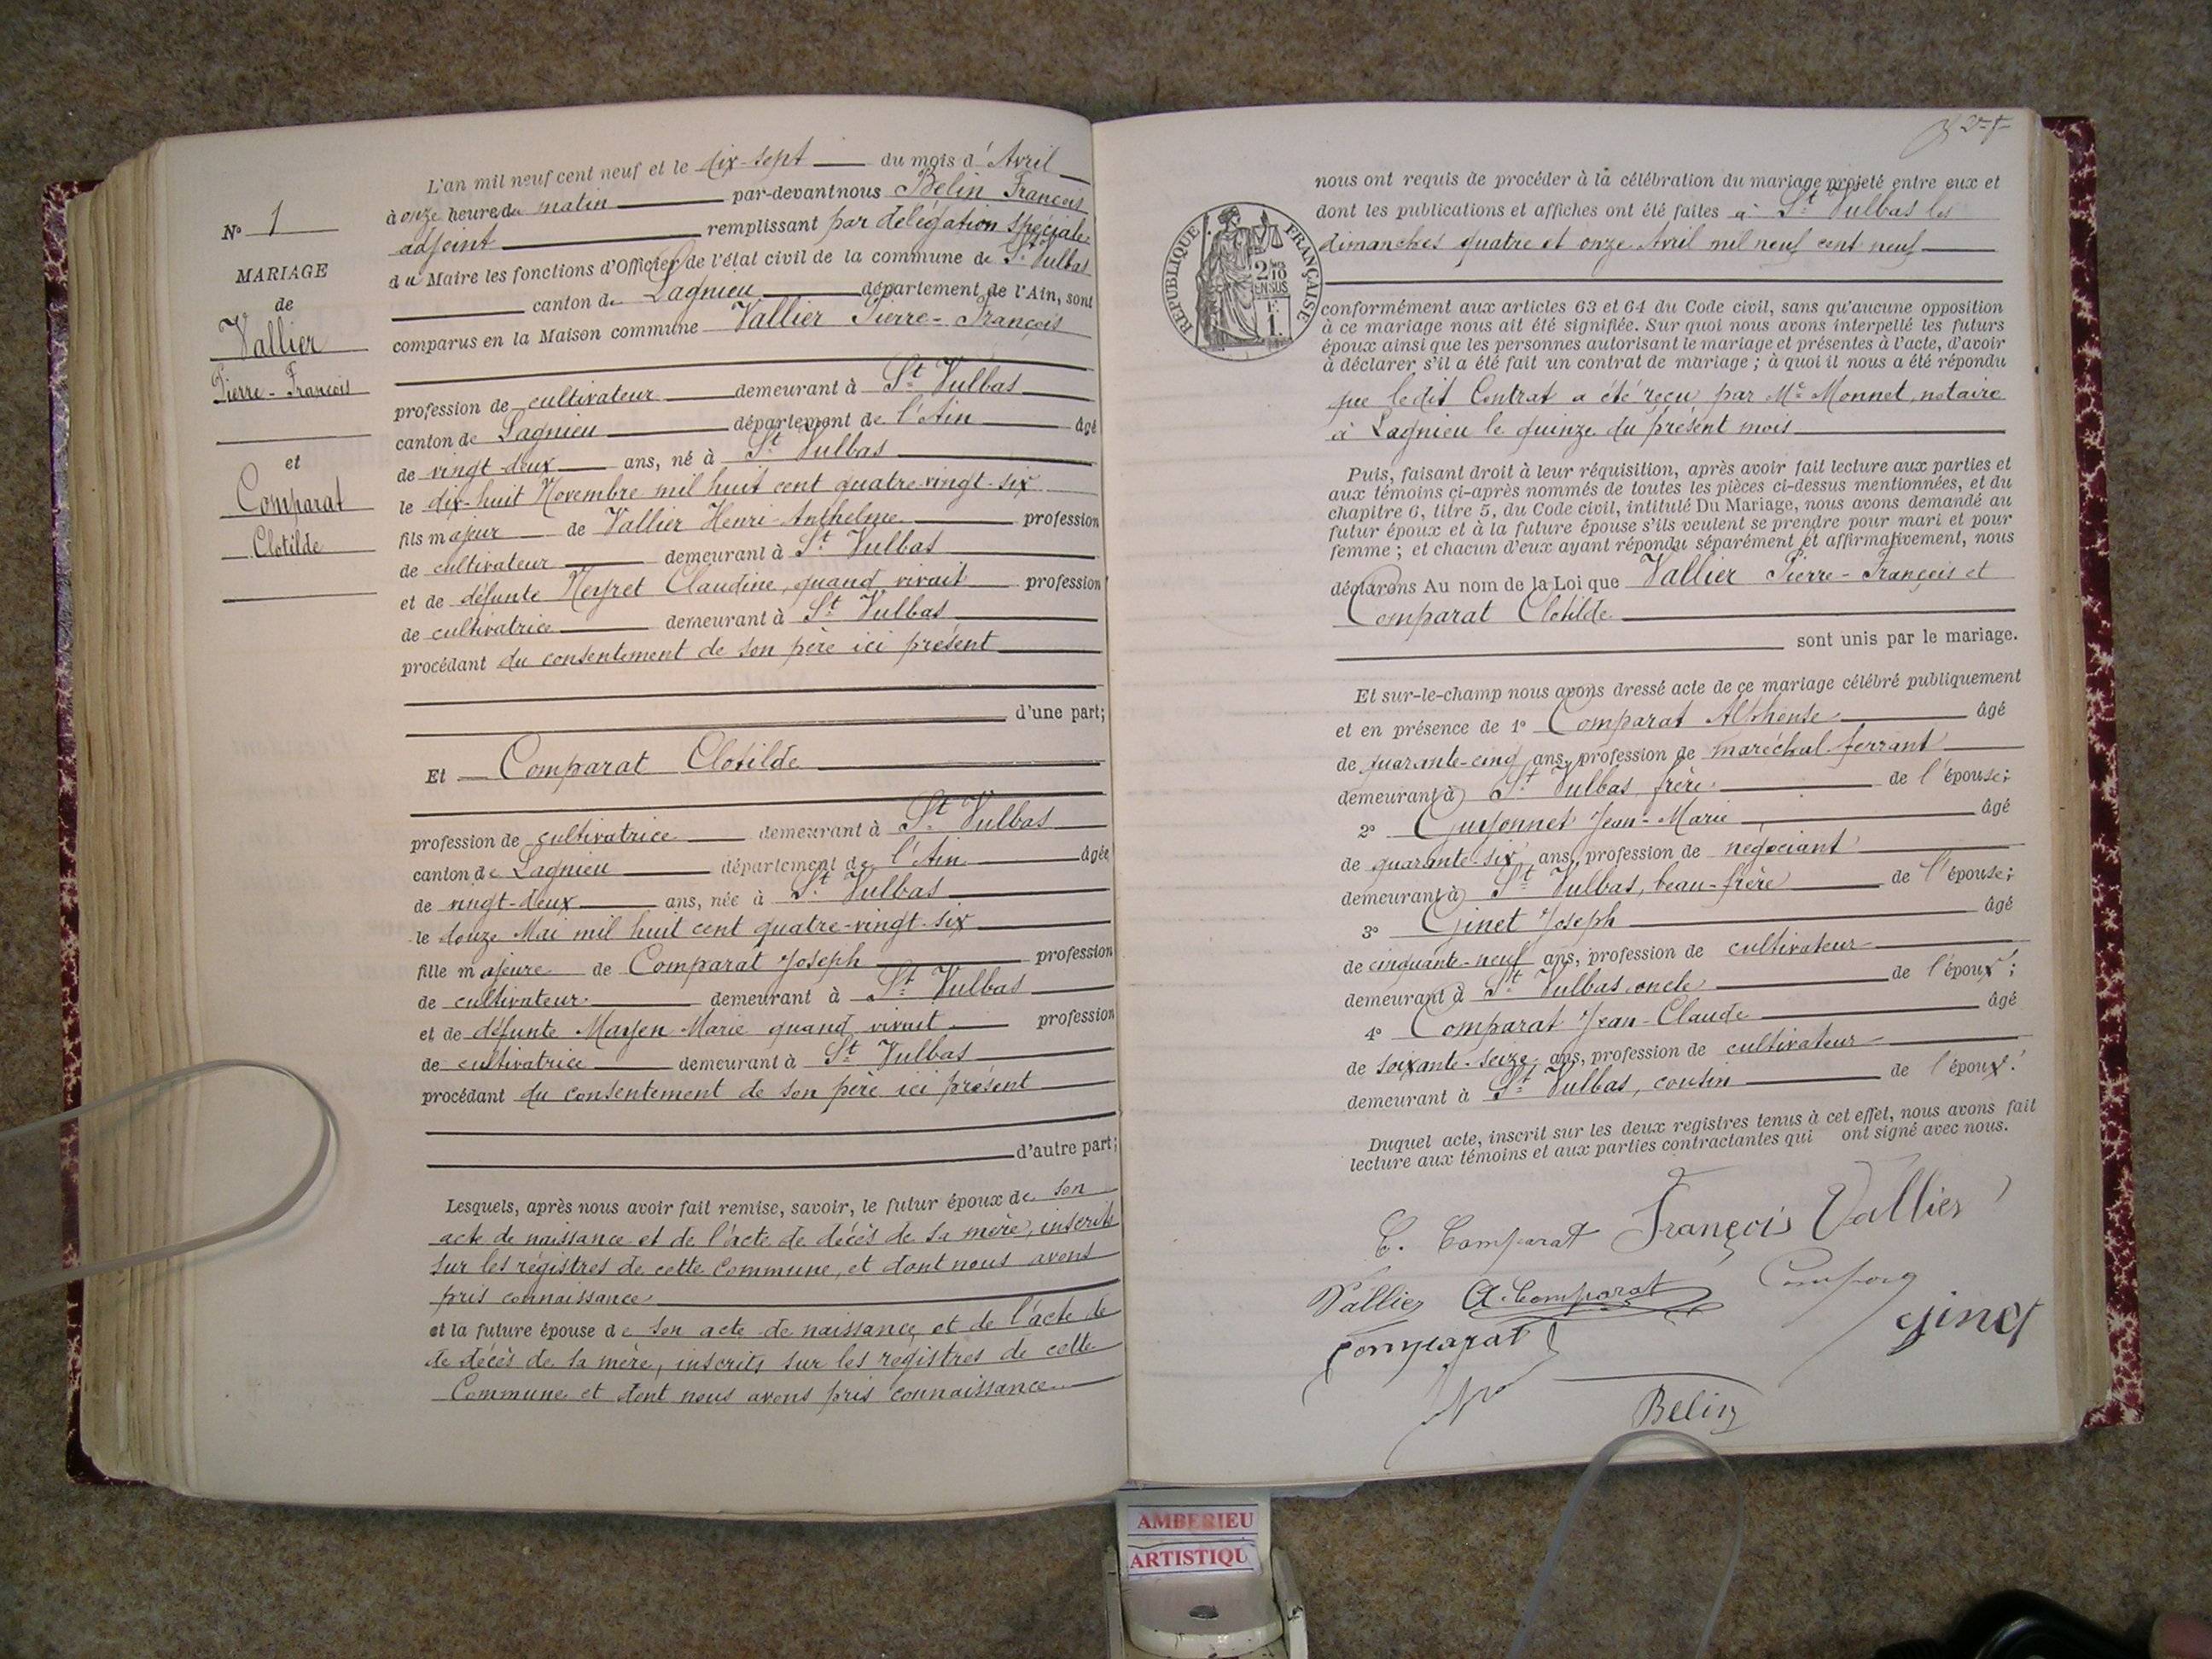 N° 1
MARIAGE
de
Vallier
Pierre-François
et
Comparat
Clotilde
L'an mil neuf cent neuf et le dix-sept du mois d'Avril
à onze heure du matin par-devant nous Belin François
adjoint remplissant par délégation spéciale
du Maire les fonctions d'Officier de l'état civil de la commune de St Vulbas
canton de Lagnieu département de l'Ain, sont
comparus en la Maison commune Vallier Pierre-François
profession de cultivateur demeurant à St Vulbas
canton de Lagnieu département de l'Ain âgé
de vingt-deux ans, né à St Vulbas
le dix-huit Novembre mil huit cent quatre-vingt-six
fils majeur de Vallier Henri-Anthelme profession
de cultivateur demeurant à St Vulbas
et de défunte Neyret Claudine, quand vivait profession
de cultivatrice demeurant à St Vulbas
procédant du consentement de son père ici présent
d'une part;
Et Comparat Clotilde
profession de cultivatrice demeurant à St Vulbas
canton de Lagnieu département de l'Ain âgée
de vingt-deux ans, née à St Vulbas
le douze Mai mil huit cent quatre-vingt-six
fille majeure de Comparat Joseph profession
de cultivateur demeurant à St Vulbas
et de défunte Mayen Marie quand vivait profession
de cultivatrice demeurant à St Vulbas
procédant du consentement de son père ici présent
d'autre part;
Lesquels, après nous avoir fait remise, savoir, le futur époux de son
acte de naissance et de l'acte de décès de sa mère, inscrits
sur les régistres de cette commune, et dont nous avons
pris connaissance
et la future épouse de son acte de naissance et de l'acte de
de décès de sa mère, inscrits sur les registres de cette
Commune et dont nous avons pris connaissance.
nous ont requis de procéder à la célébration du mariage projeté entre eux et
dont les publications et affiches ont été faites à St Vulbas les
dimanches quatre et onze Avril mil neuf cent neuf
RÉPUBLIQUE FRANÇAISE
2/10
EN SUS
F.
1.
conformément aux articles 63 et 64 du Code civil, sans qu'aucune opposition
à ce mariage nous ait été signifiée. Sur quoi nous avons interpellé les futurs
époux ainsi que les personnes autorisant le mariage et présentes à l'acte, d'avoir
à déclarer s'il a été fait un contrat de mariage; à quoi il nous a été répondu
que ledit Contrat a été reçu par Me Monnet, notaire
à Lagnieu le quinze du présent mois
Puis, faisant droit à leur réquisition, après avoir fait lecture aux parties et
aux témoins ci-après nommés de toutes les pièces ci-dessus mentionnées, et du
chapitre 6, titre 5, du Code civil, intitulé Du Mariage, nous avons demandé au
futur époux et à la future épouse s'ils veulent se prendre pour mari et pour
femme; et chacun d'eux ayant répondu séparément et affirmativement, nous
déclarons Au nom de la Loi que Vallier Pierre-François et
Comparat Clotilde
sont unis par le mariage.
Et sur-le-champ nous avons dressé acte de ce mariage célébré publiquement
et en présence de 1° Comparat Alphonse âgé
de quarante-cinq ans, profession de maréchal-ferrant
demeurant à St Vulbas, frère de l'épouse;
2° Guyonnet Jean-Marie âgé
de quarante-six ans, profession de négociant
demeurant à St Vulbas, beau-frère de l'épouse;
3° Ginet Joseph âgé
de cinquante-neuf ans, profession de cultivateur
demeurant à St Vulbas oncle de l'époux;
4° Comparat Jean-Claude âgé
de soixante-seize ans, profession de cultivateur
demeurant à St Vulbas, cousin de l'époux.
Duquel acte, inscrit sur les deux registres tenus à cet effet, nous avons fait
lecture aux témoins et aux parties contractantes qui ont signé avec nous.
C. Comparat François Vallier
Vallier A. Comparat
Comparat Ginet
Belin
AMBERIEU
ARTISTIQU